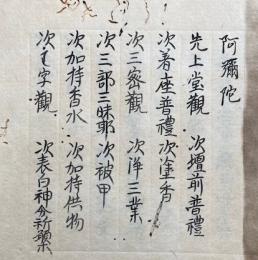 阿彌陀
先上堂觀 次壇前普禮
次着座普禮 次塗香
次三密觀 次淨三業
次三部三昧耶 次被甲
次加持香水 次加持供物
次𑖨字觀 次表白神分祈願